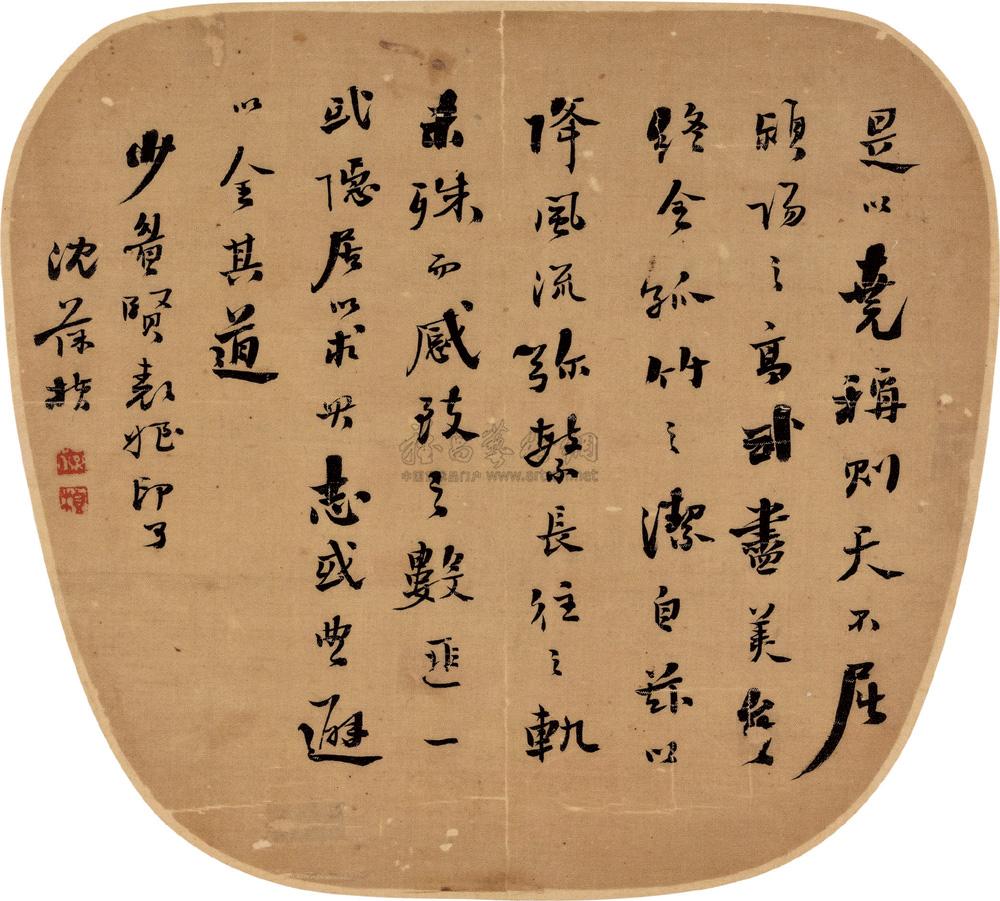 是以堯稱則天不屈
潁陽之高武盡美矣
終全孤竹之潔自茲以
降風流彌繁長往之軌
未殊而感致之數匪一
或隱居以求其志或曲避
以全其道
少盦賢表姪印可
沈葆楨
雅昌藝術網